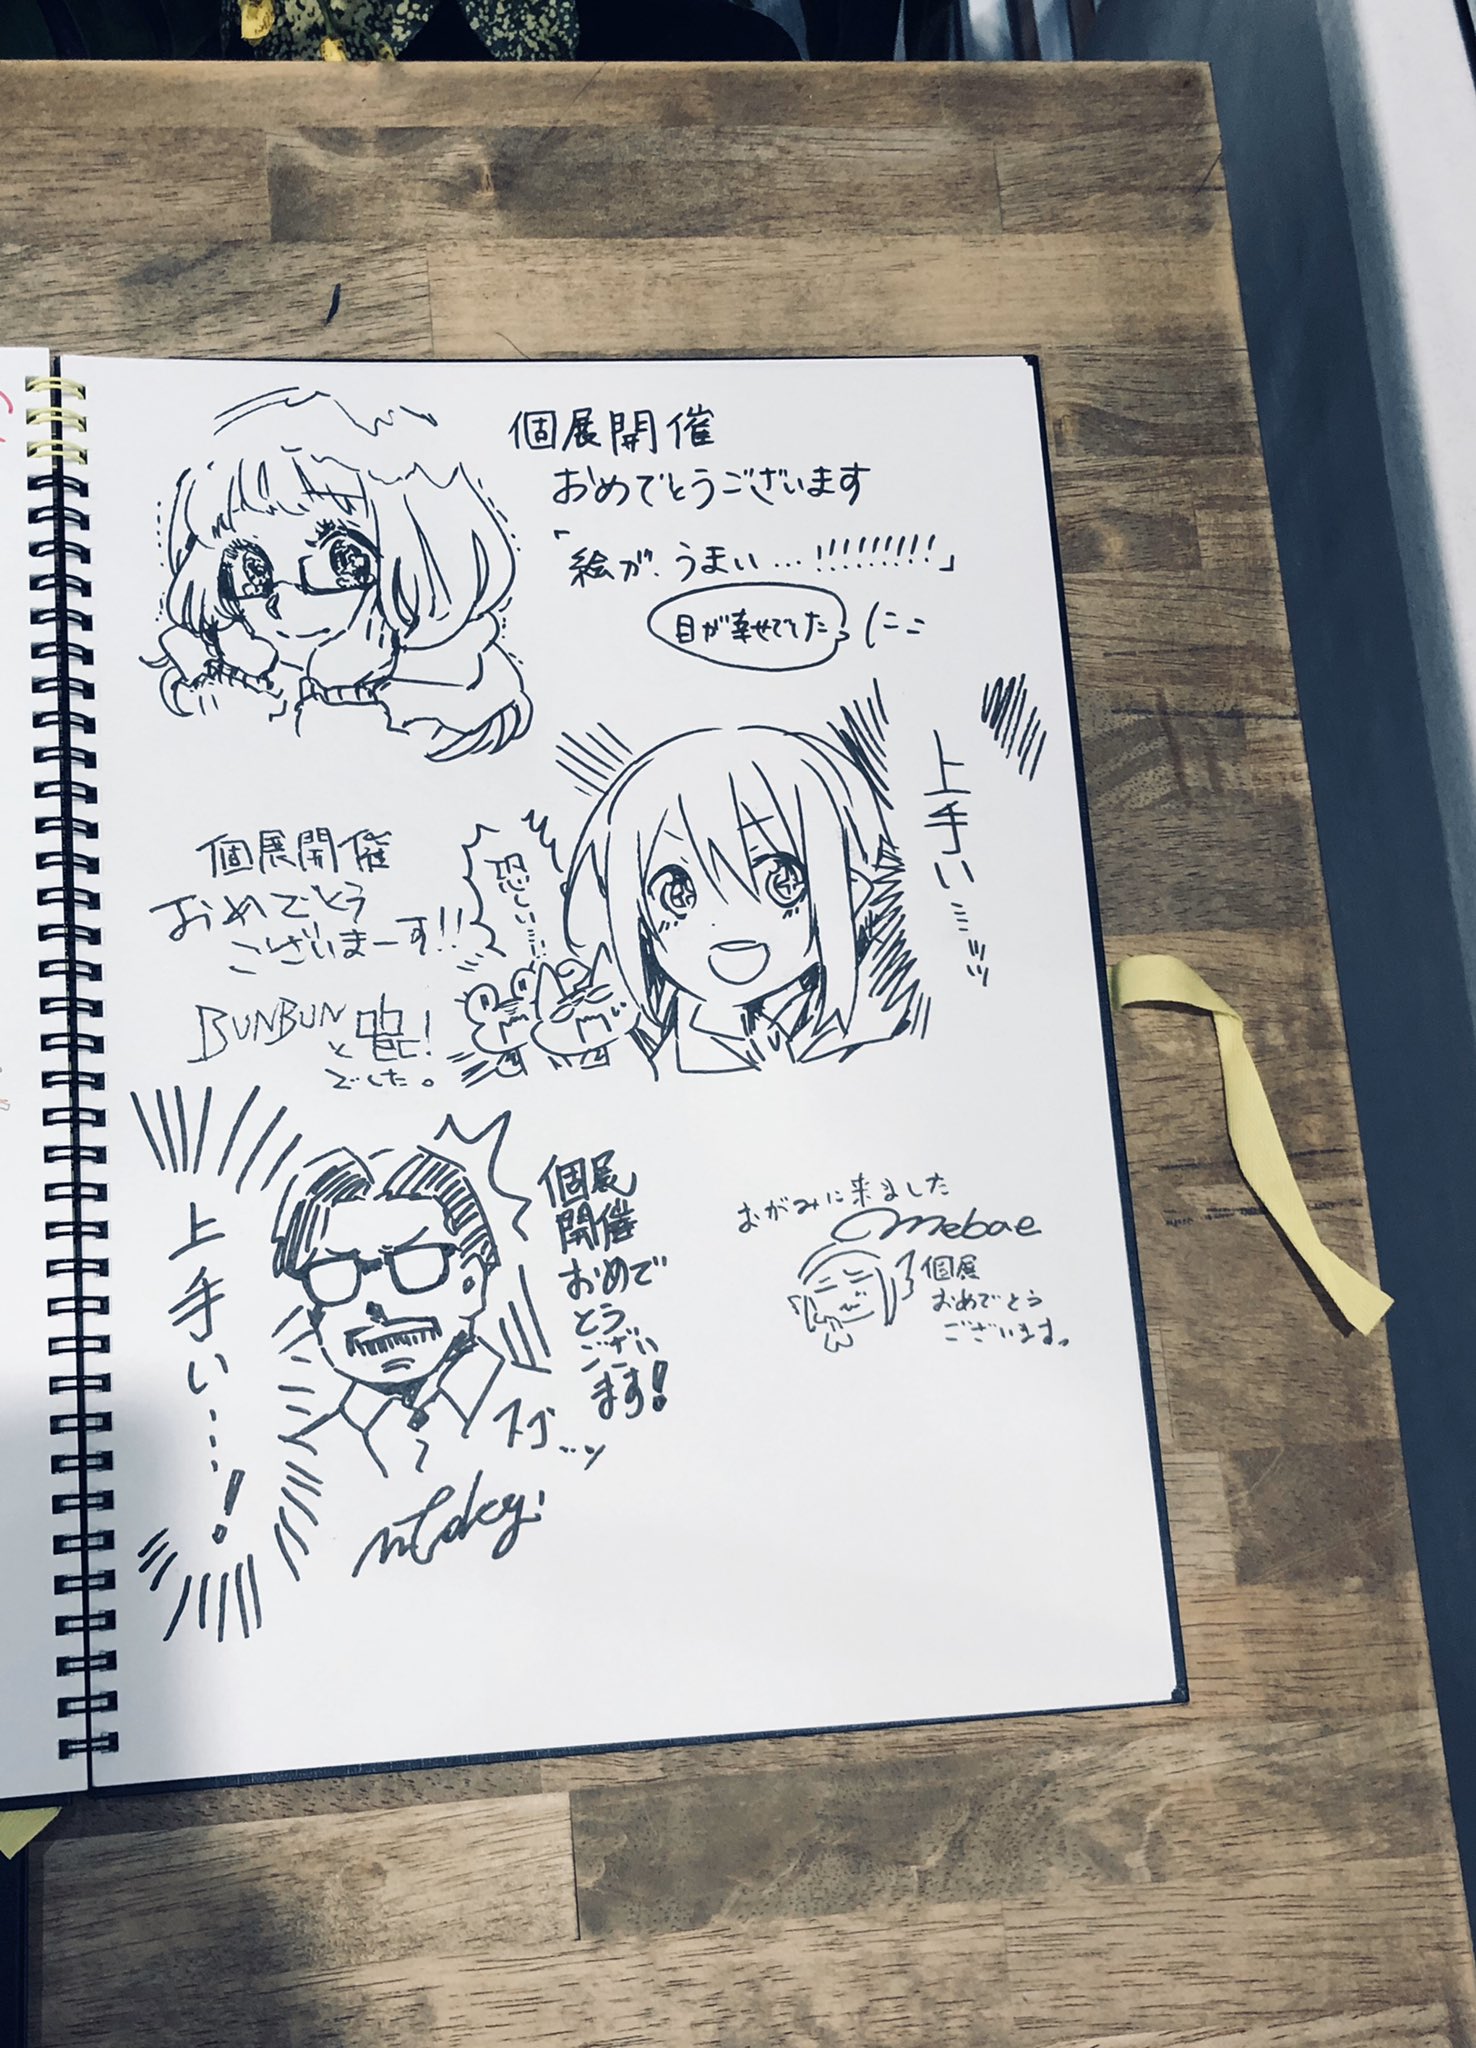 個展開催
おめでとうございます
「絵が、うまい…!!!!!!!!!」
目が幸せでした
上手い…ッッ
恐い……
個展開催
おめでとう
ございまーす!!
BUNBUNと
でした。
上手い……!
個展
開催
おめで
とう
ござい
ます!
スゴ…ッ
おがみに来ました
Mebae
個展
おめでとう
ございます。